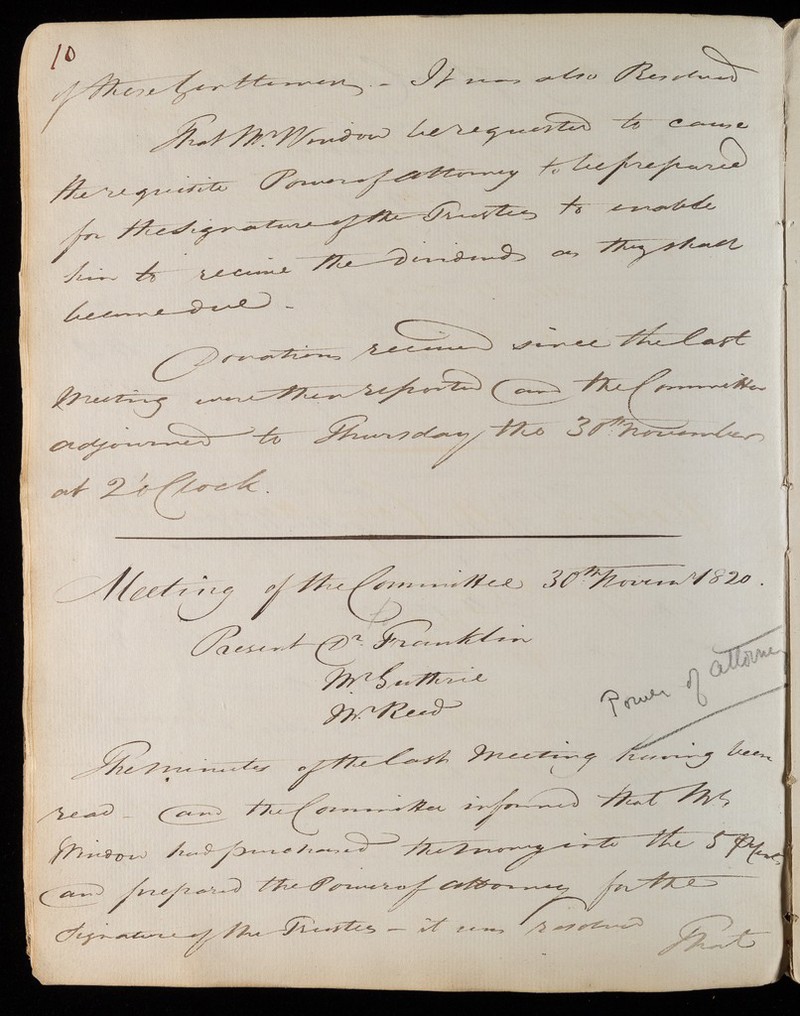 10
of these Gentlemen. - It was also Resolved
That Mr. Window be requested to cause
the requisite Power of Attorney to be prepared
for the Signature of the Trustees to enable
him to receive the Dividends as they shall
become due -
Donations received since the last
Meeting were then reported and the Committee
adjourned to Thursday the 30th November
at 2 o'Clock.
Meeting of the Committee 30th Novem 1820.
Present Dr. Franklin
Mr. Guthrie
Mr. Reed
Power of attorney
The Minutes of the last Meeting having been
read - and the Committee informed that Mr.
Window had purchased the money into the 5 P Cent
and prepared the Power of Attorney for the
Signature of the Trustees - it was resolved
That